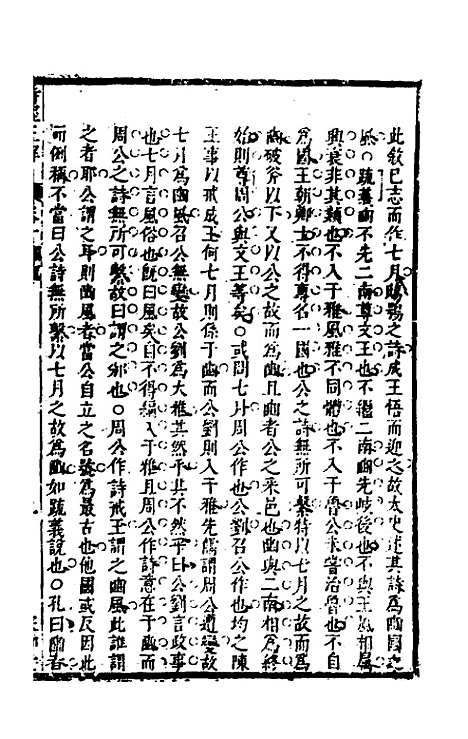 此敘已志而作七月鴟鴞之詩成王悟而迎之故太史述其詩為豳國之
風○疏義豳不先二南尊文王也不繼二南豳先岐後也不與王風相屬
興衰非其類也不入于雅風雅不同體也不入于魯公未嘗治魯也不自
為國王朝鄉士不得專名一國也公之詩無所可繫特以七月之故而為
豳破斧以下又以公之故而為豳且豳者公之采邑也豳與二南相為終
始則尊周公與文王等矣○或問七月周公作也公劉召公作也均之陳
王事以戒成王何七月則係于豳而公劉則入于雅先儒謂周公遭變故
七月為豳風召公無變故公劉為大雅其然乎其不然乎曰公劉言政事
也七月言風俗也既曰風矣自不得編入于雅且周公作詩意在于豳而
周公之詩無所可繫故曰謂之豳也○周公作詩戒王謂之豳風此誰謂
之者耶公謂之耳則豳風者當公自立之名號為最古也他國或反因此
而例稱不當曰公詩無所繫以七月之故為豳如疏義說也○孔曰豳春